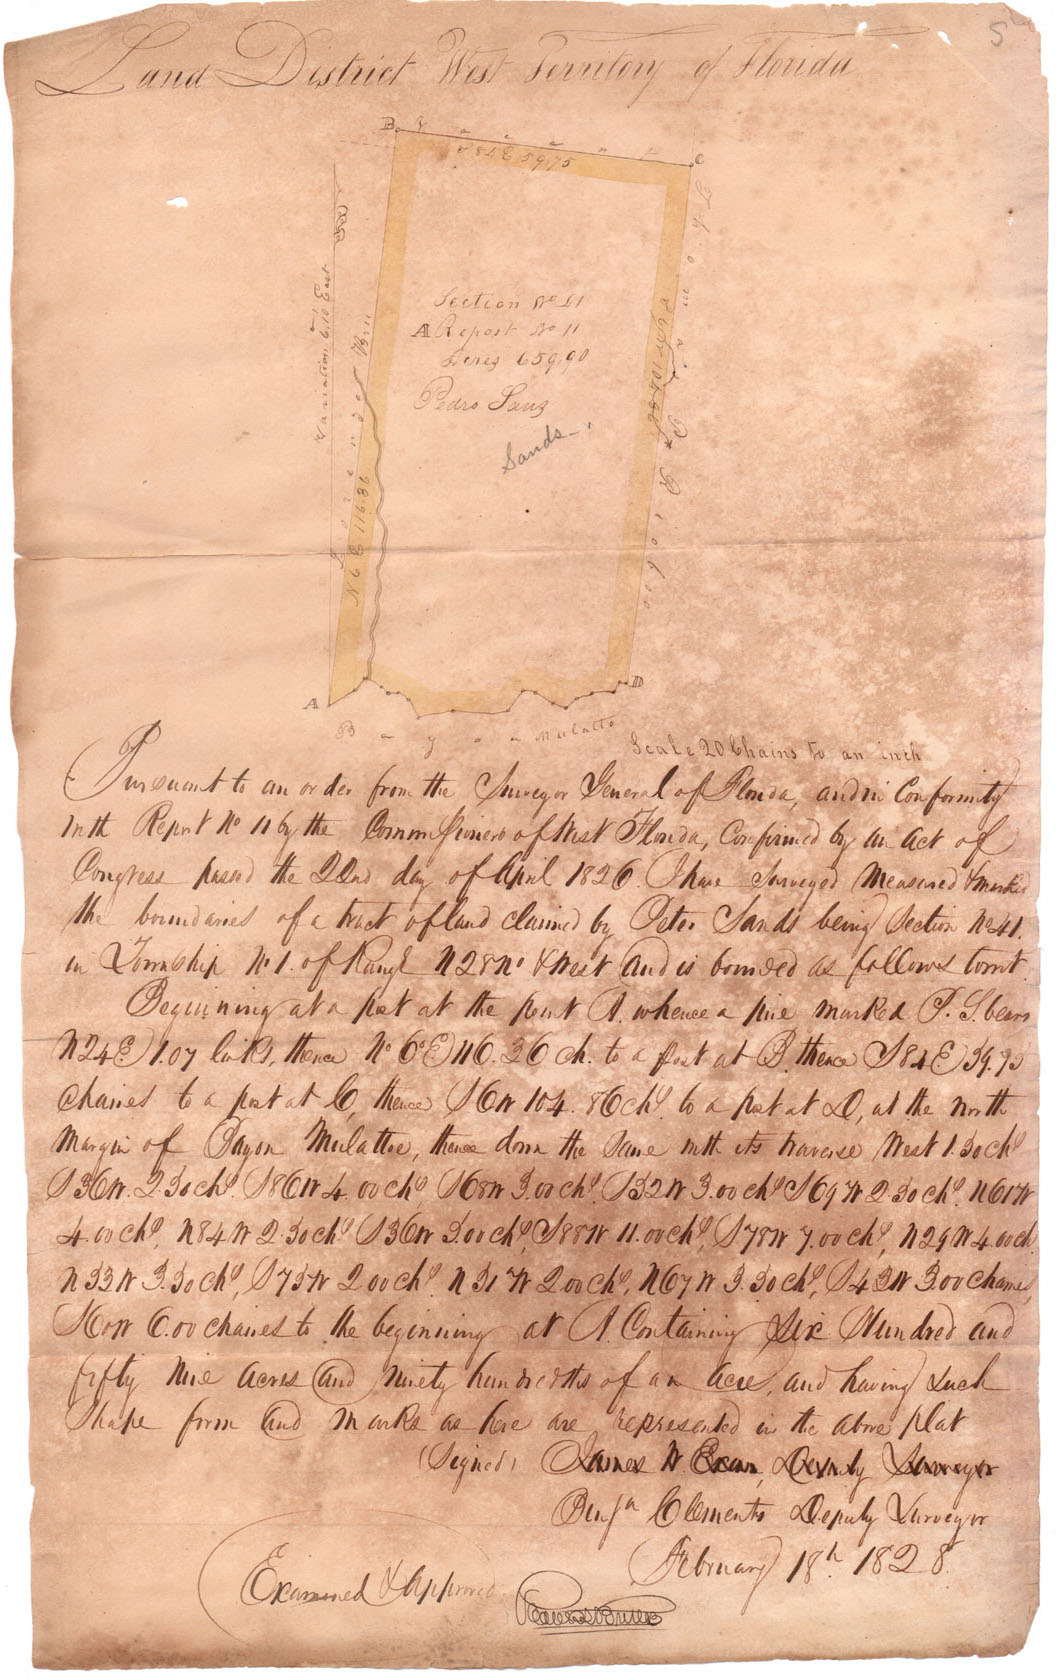 S
Land District West Territory of Florida
B
V a c a n t
C
S 84 E 59.75
Variation 6.10 East
N 6 E 116.36
S 6 W 104.86
Section No 41
A Report No 11
Acres 659.90
Pedro Sanz
Sands
A
D
Bayou Mulatto
Scale 20 Chains to an inch
Pursuant to an order from the Surveyor General of Florida, and in Conformity
with Report No 11 by the Commissioners of West Florida, Confirmed by an act of
Congress passed the 22nd day of April 1826. I have Surveyed Measured & marked
the boundaries of a tract of land claimed by Peter Sands being Section No 41.
in Township No 1. of Range N 28 No & West and is bounded as follows towit
Beginning at a post at the point A. whence a pine marked P. S. bears
N 24 E 1.07 links, thence No 6° E 116.36 ch. to a post at B. thence S 84 E 59.75
chaines to a post at C, thence S 6 W 104.86 chs. to a post at D, at the north
margin of Bayou Mulattoe, thence down the same with its traverse West 1.50 chs
S 36 W. 2.50 chs. S 86 W 4.00 chs S 68 W 3.00 chs. S 52 W 3.00 chs S 69 W 2.50 chs. N 61 W
4.00 chs, N 84 W 2.50 chs S 36 W 5.00 chs, S 88 W 11.00 chs, S 78 W 7.00 chs, N 29 W 4.00 ch
N 33 W 3.50 chs, S 75 W 2.00 chs. N 51 W 2.00 chs, N 67 W 3.50 chs, S 43 W 3.00 chaines,
S 60 W 6.00 chaines to the beginning at A. Containing Six Hundred and
fifty nine acres and ninety hundredths of an acre, and having such
shape form and marks as here are represented in the above plat
(Signed) James W. Exum, Deputy Surveyor
Benjn Clements Deputy Surveyor
February 18th 1828.
Examined & Approved